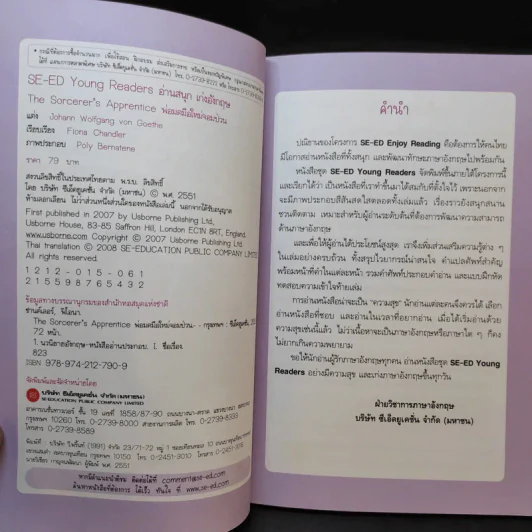 • กรณีที่ต้องการซื้อจำนวนมาก เพื่อใช้สอน ฝึกอบรม ส่งเสริมการขาย หรือเป็นของขวัญพิเศษ
SE-ED Young Readers อ่านสนุก เก่งอังกฤษ
The Sorcerer's Apprentice พ่อมดมือใหม่จอมป่วน
แต่ง Johann Wolfgang von Goethe
เรียบเรียง Fiona Chandler
ภาพประกอบ Poly Bernatene
ราคา 79 บาท
สงวนลิขสิทธิ์ในประเทศไทยตาม พ.ร.บ. ลิขสิทธิ์
โดย บริษัท ซีเอ็ดยูเคชั่น จำกัด (มหาชน) © พ.ศ. 2551
ห้ามลอกเลียน ไม่ว่าส่วนหนึ่งส่วนใดของหนังสือเล่มนี้ นอกจากได้รับอนุญาต
First published in 2007 by Usborne Publishing Ltd,
Usborne House, 83-85 Saffron Hill, London EC1N 8RT, England.
www.usborne.com Copyright © 2007 Usborne Publishing Ltd.
Thai translation © 2008 SE-EDUCATION PUBLIC COMPANY LIMITED
All rights reserved.
1 2 1 2 - 0 1 5 - 0 6 1
2 1 5 5 9 8 7 6 5 4 3 2
ข้อมูลทางบรรณานุกรมของสำนักหอสมุดแห่งชาติ
ชานด์เลอร์, ฟิโอนา.
The Sorcerer's Apprentice พ่อมดมือใหม่จอมป่วน.- - กรุงเทพฯ : ซีเอ็ดยูเคชั่น,
72 หน้า.
1. นวนิยายอังกฤษ--หนังสืออ่านประกอบ. I. ชื่อเรื่อง.
823
ISBN 978-974-212-790-9
จัดพิมพ์และจัดจำหน่ายโดย
บริษัท ซีเอ็ดยูเคชั่น จำกัด (มหาชน)
SE-EDUCATION PUBLIC COMPANY LIMITED
อาคารเนชั่นทาวเวอร์ ชั้น 19 เลขที่ 1858/87-90 ถนนบางนา-ตราด
กรุงเทพฯ 10260 โทร. 0-2739-8000
โทรสาร 0-2739-8589
หากมีคำแนะนำติชม ติดต่อได้ที่ comment@se-ed.com
ค้นหาหนังสือที่ต้องการ ได้เร็ว ทันใจ ที่ www.se-ed.com
คำนำ
ปณิธานของโครงการ SE-ED Enjoy Reading คือต้องการให้คนไทย
มีโอกาสอ่านหนังสือที่ทั้งสนุก และพัฒนาทักษะภาษาอังกฤษไปพร้อมกัน
หนังสือชุด SE-ED Young Readers จัดพิมพ์ขึ้นภายใต้โครงการนี้
และเรียกได้ว่า เป็นหนังสือที่เราทำขึ้นมาได้สมกับที่ตั้งใจไว้ เพราะนอกจาก
จะมีภาพประกอบสีสันสดใสตลอดทั้งเล่มแล้ว เรื่องราวยังสนุกสนาน
ชวนติดตาม เหมาะสำหรับผู้อ่านระดับต้นที่ต้องการพัฒนาความสามารถ
ด้านภาษาอังกฤษ
และเพื่อให้ผู้อ่านได้ประโยชน์สูงสุด เราจึงเพิ่มส่วนเสริมความรู้ต่าง ๆ
ในเล่มอย่างครบถ้วน ทั้งสรุปไวยากรณ์น่าสนใจ คำแปลศัพท์สำคัญ
พร้อมหน้าที่คำในแต่ละหน้า รวมคำศัพท์ประกอบคำอ่าน และแบบฝึกหัด
ทดสอบความเข้าใจท้ายเล่ม
การอ่านหนังสือน่าจะเป็น "ความสุข" นักอ่านแต่ละคนจึงควรได้ เลือก
อ่านหนังสือที่ชอบ และอ่านในเวลาที่อยากอ่าน เมื่อได้เริ่มอ่านด้วย
ความสุขเช่นนี้แล้ว ไม่ว่าเนื้อหาจะเป็นภาษาอังกฤษหรือภาษาใด ๆ ก็คง
ไม่ยากเกินความพยายาม
ขอให้นักอ่านผู้รักภาษาอังกฤษทุกคน อ่านหนังสือชุด SE-ED Young
Readers อย่างมีความสุข และเก่งภาษาอังกฤษขึ้นทุกวัน
ฝ่ายวิชาการภาษาอังกฤษ
บริษัท ซีเอ็ดยูเคชั่น จำกัด (มหาชน)